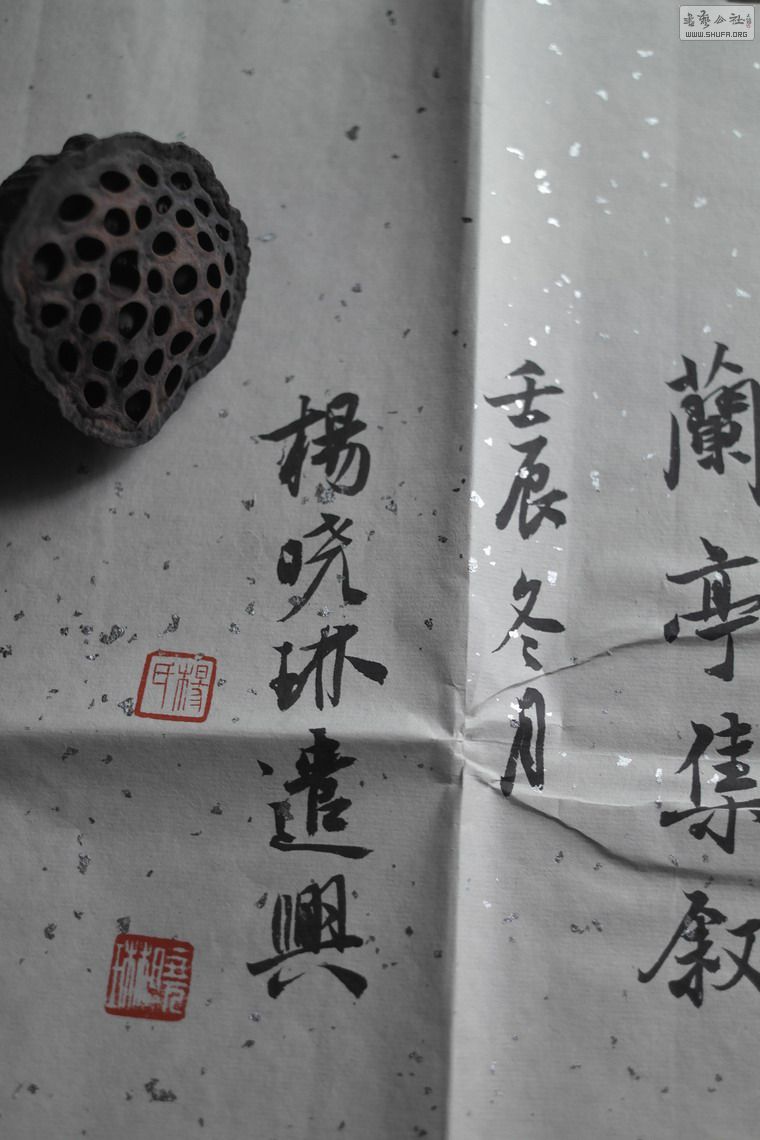 蘭亭集叙
壬辰冬月
楊晓琳遣興
楊氏
曉琳
書藝公社
WWW.SHUFA.ORG